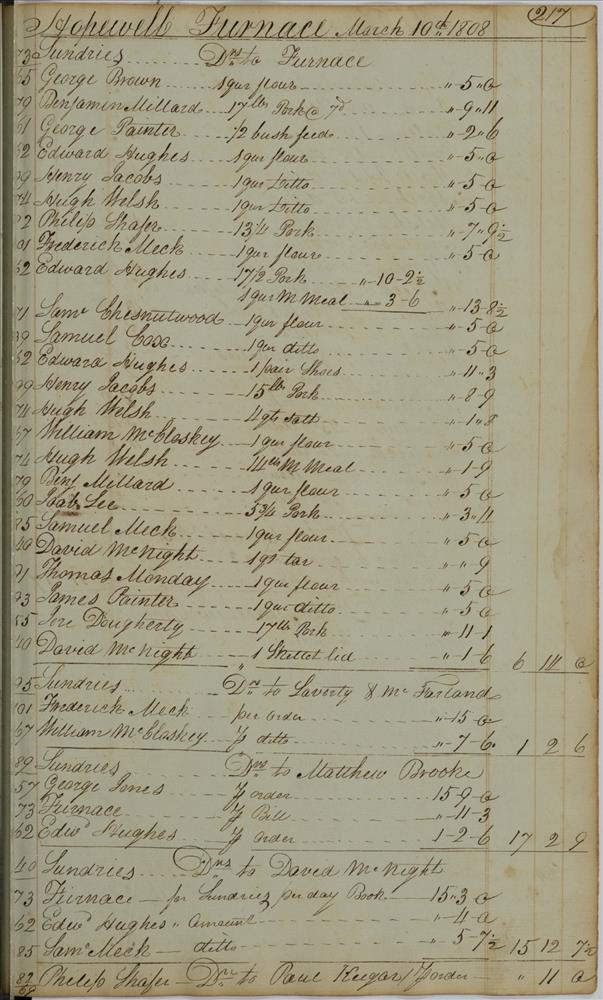 Hopewell Furnace March 10th 1808 217
73 Sundries Drs to Furnace
65 George Brown 1 qur flour " 5 " 0
79 Benjamin Millard 17 lbs Pork @ 7d " 9 " 11
61 George Painter 1/2 bush feed " 2 " 6
62 Edward Hughes 1 qur flour " 5 " 0
99 Henry Jacobs 1 qur Ditto " 5 - 0
74 Hugh Welsh 1 qur Ditto " 5 - 0
82 Philip Shafer 13 1/4 Pork " 7 " 9 1/2
101 Frederick Meck 1 qur flour " 5 - 0
62 Edward Hughes 17 1/2 Pork " 10 - 2 1/2
1 qur M Meal " 3 - 6 " 13 - 8 1/2
71 Saml Chesnutwood 1 qur flour " 5 - 0
99 Samuel Coxe 1 qur ditto " 5 - 0
62 Edward Hughes 1 pair Shoes " 11 " 3
99 Henry Jacobs 15 lbs Pork " 8 - 9
74 Hugh Welsh 4 qts salt " 1 " 8
67 William McCloskey 1 qur flour " 5 0
74 Hugh Welsh 14 lbs M Meal " 1 - 9
79 Benj Millard 1 qur flour " 5 0
60 Lee 5 3/4 Pork " 3 " 11
85 Samuel Meck 1 qur flour " 5 0
40 David McNight 1 qt tar " " 9
91 Thomas Monday 1 qur flour " 5 0
93 James Painter 1 qur ditto " 5 0
55 Jere Dougherty 17 lbs Pork " 11 - 1
40 David McNight 1 Skillet lid " 1 - 6 6 14 0
95 Sundries Drs to Laverty & McFarland
101 Frederick Meck per order " 15 - 0
67 William McCloskey ditto " 7 - 6 1 2 6
89 Sundries Drs to Matthew Brooke
57 George Jones order 15 - 9 - 0
73 Furnace Bill " 11 - 3
62 Edwd Hughes order 1 - 2 - 6 17 2 9
40 Sundries Drs to David McNight
73 Furnace — for Sundries per day Book 15 " 3 0
62 Edwd Hughes " Amount " 4 - 0
85 Saml Meck — ditto " 5 - 7 1/2 15 12 7 1/2
82 Philip Shafer — Dr to Paul order " 11 0